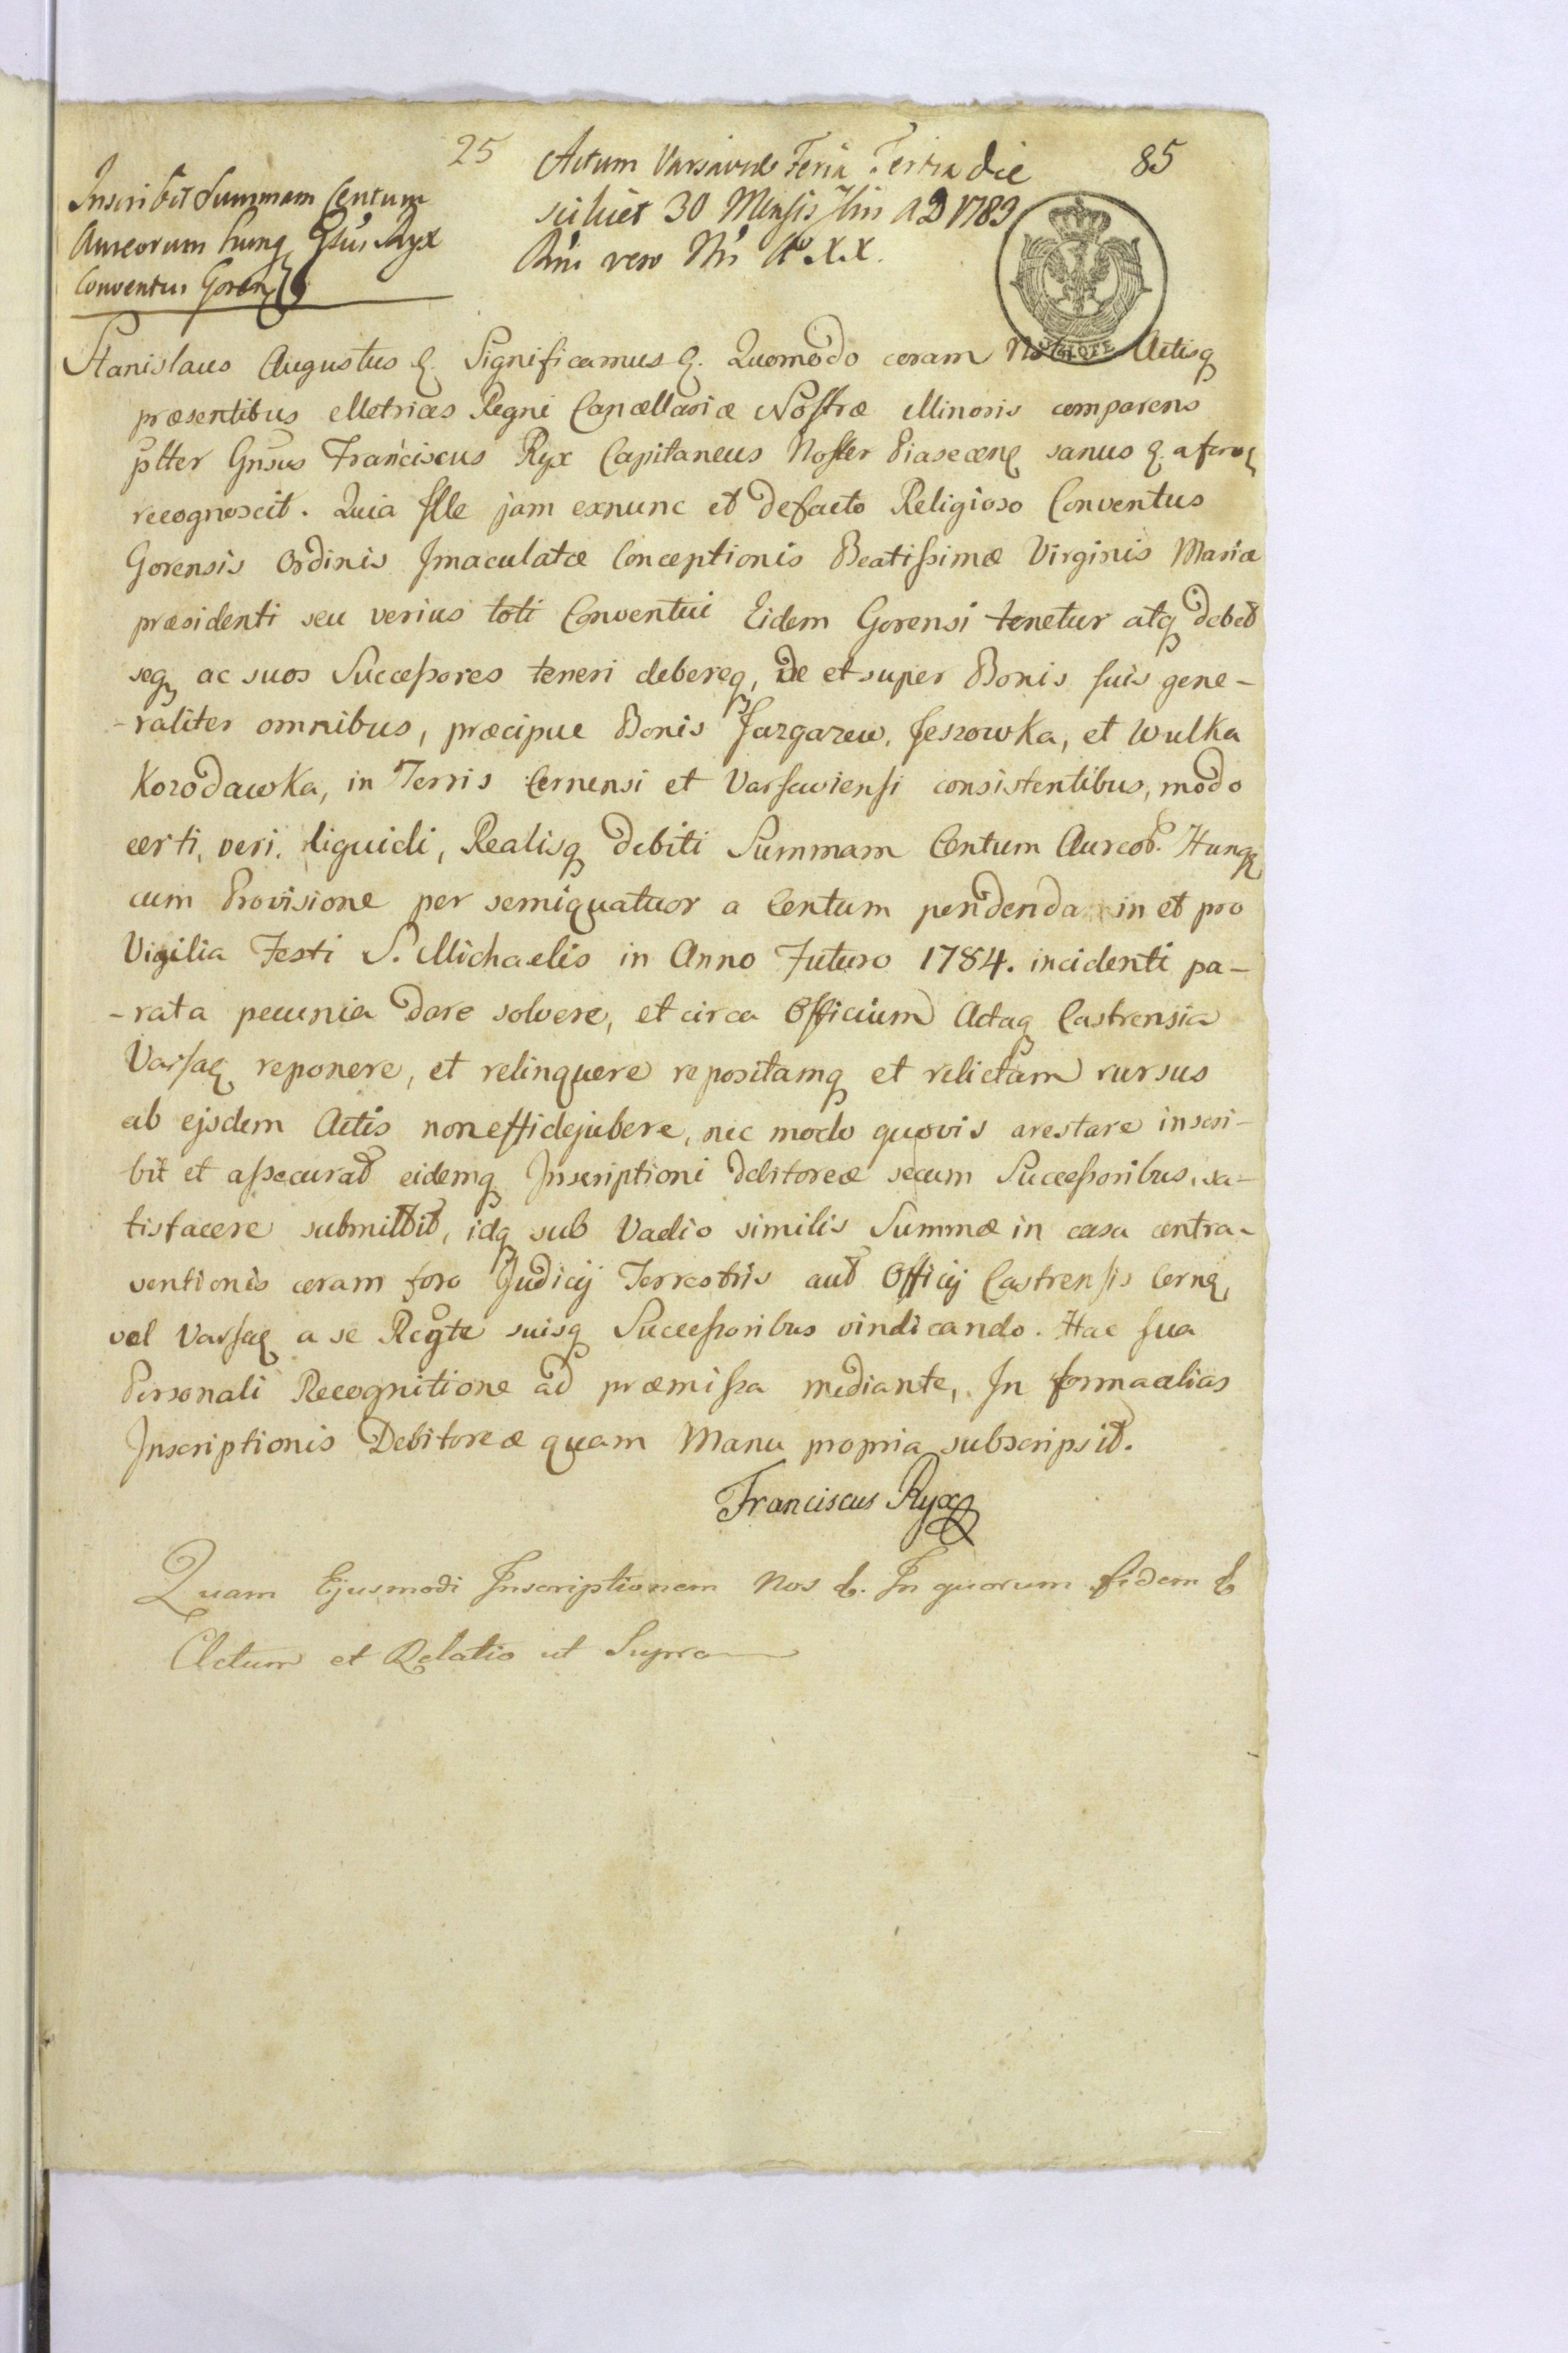 25
85
Inscribit Summam Centum
Aureorum hung Gsus Ryx
Conventui Goren
Actum Varsaviae Feria Tertia die
scilicet 30 Mensis 7bris AD 1783
Rni vero Nri Ao XX.
Stanislaus Augustus &. Significamus &. Quomodo coram Actisq
præsentibus Metrices Regni Cancellariæ Nostræ Minoris comparens
pltter Gnsus Franciscus Ryx Capitaneus Noster Piasecen sanus &.
recognoscit. Quia Ille jam exnunc et defacto Religioso Conventus
Gorensis Ordinis Imaculatæ Conceptionis Beatissimæ Virginis Mariæ
præsidenti seu verius toti Conventui Eidem Gorensi tenetur atq debet
seq ac suos Successores teneri debereq, De et super Bonis suis gene-
-raliter omnibus, præcipue Bonis Jazgarzew, Jeszowka, et Wulka
Kozodawka, in Terris Cernensi et Varsaviensi consistentibus, modo
certi, veri, liquidi, Realisq debiti Summam Centum Aureor. Hung
cum Provisione per semiquatuor a Centum pendenda in et pro
Vigilia Festi S. Michaelis in Anno Futuro 1784. incidenti pa-
-rata pecunia dare solvere, et circa Officium Actaq Castrensia
Varsaq reponere, et relinquere repositamq et relictam rursus
ab ejsdem Actis non effidejubere, nec modo quovis arestare inscri-
bit et assecurat eidemq Inscriptioni debitoreæ secum Successoribus, sa-
tisfacere submittit, idq sub Vadio similis Summæ in casu contra-
ventionis coram foro Judicij Terrestris aut Officij Castrensis Cerne
vel Varsaq a se Rcgte suisq Successoribus vindicando. Hac sua
Personali Recognitione ad præmissa mediante, In forma alias
Inscriptionis Debitoreæ quam Manu propria subscripsit.
Franciscus Ryx
Quam Ejusmodi Inscriptionem Nos &. In quorum fidem &
Actum et Relatio ut Supra